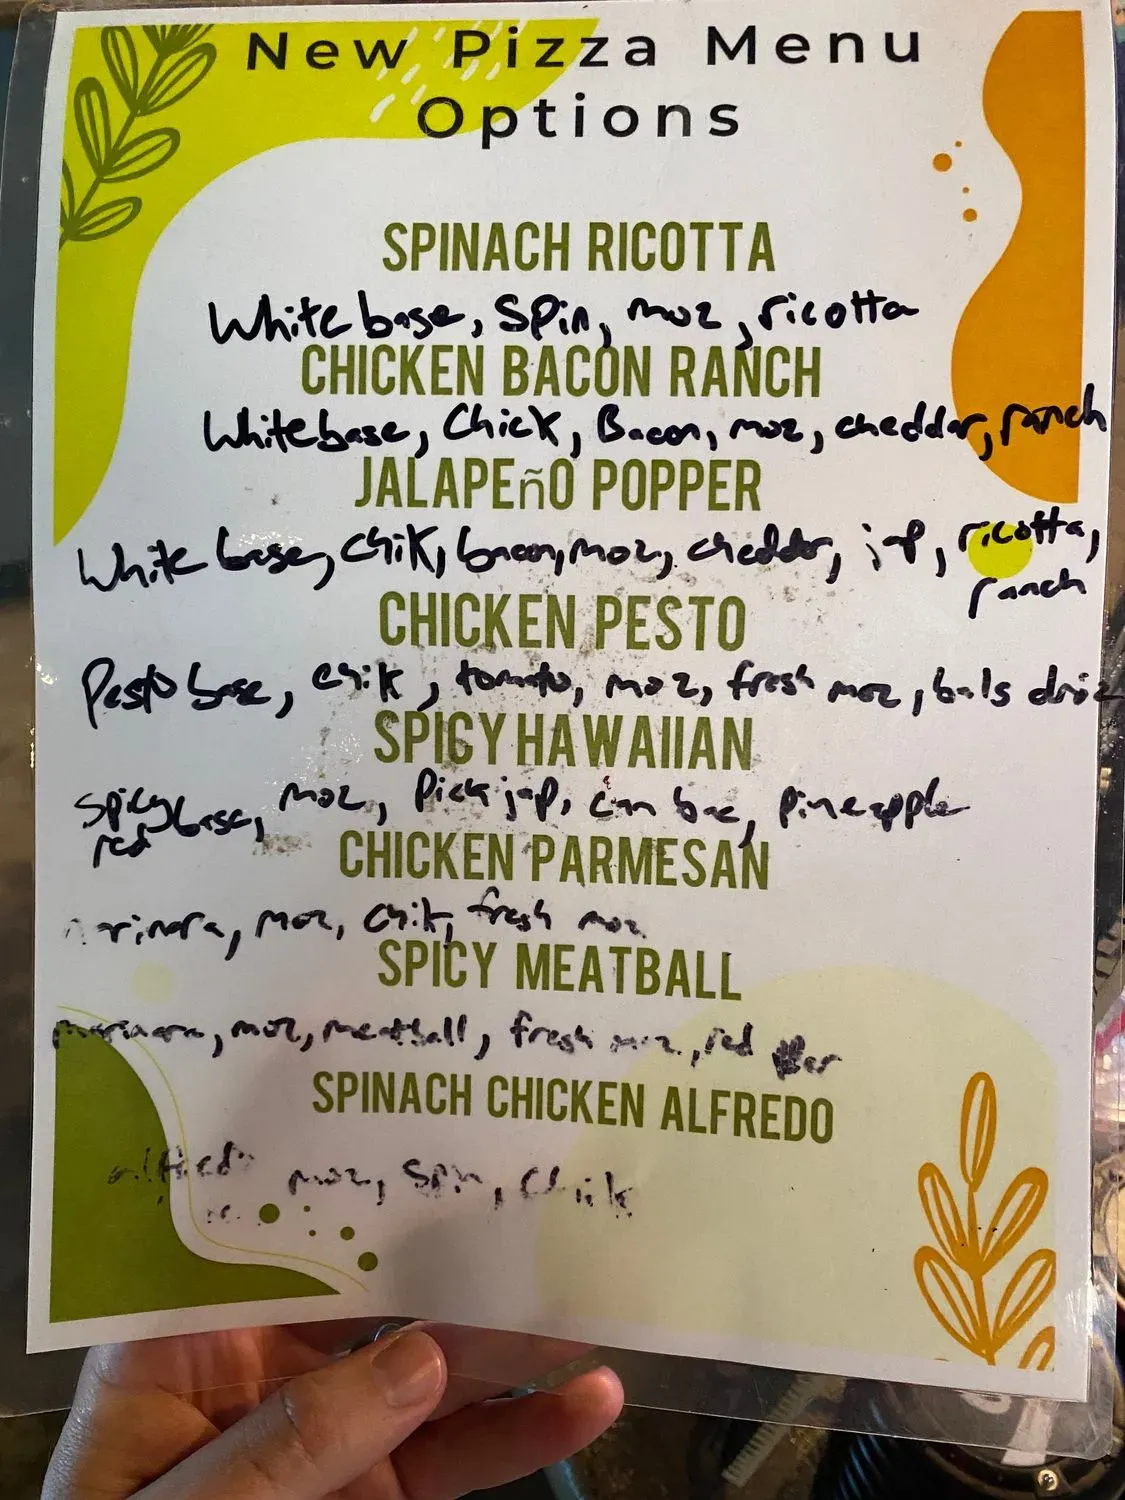 New Pizza Menu
Options
SPINACH RICOTTA
White base, Spin, moz, ricotta
CHICKEN BACON RANCH
White base, Chick, Bacon, moz, cheddar, ranch
JALAPEñO POPPER
White base, chik, bacon, moz, cheddar, jap, ricotta,
ranch
CHICKEN PESTO
Pesto base, chik, tomato, moz, fresh moz, bals driz
SPICY HAWAIIAN
spicy base, moz, Pick jap, can bac, pineapple
red
CHICKEN PARMESAN
moz, chik, fresh moz
SPICY MEATBALL
marinara, moz, meatball, fresh moz, red
SPINACH CHICKEN ALFREDO
moz, spin, chick